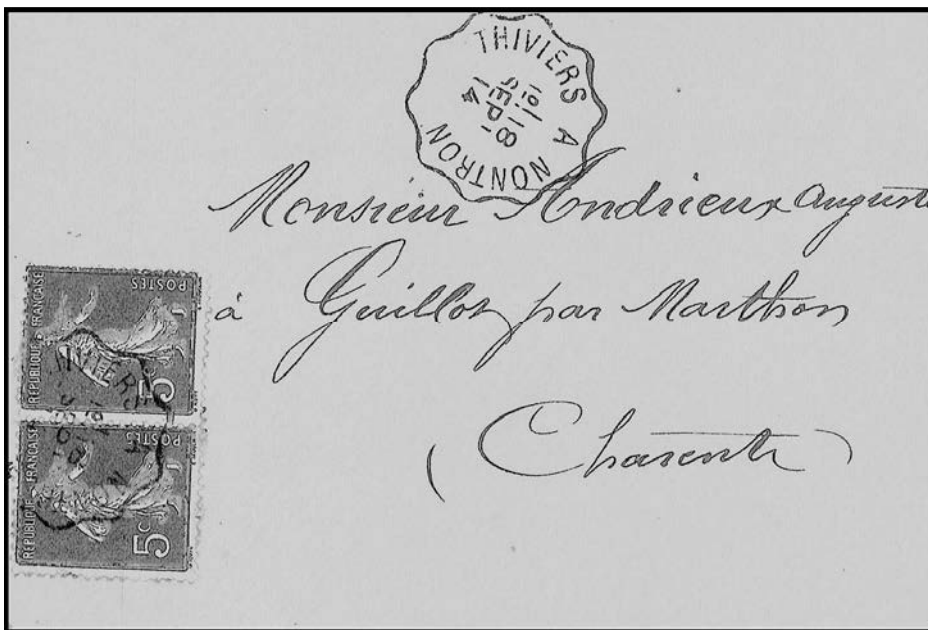 THIVIERS A NONTRON
1E/18
SEPT
14
Monsieur Andrieux Auguste
à Guillot par Marthon
(Charente)
REPUBLIQUE FRANCAISE
POSTES
5c
REPUBLIQUE FRANCAISE
POSTES
5c